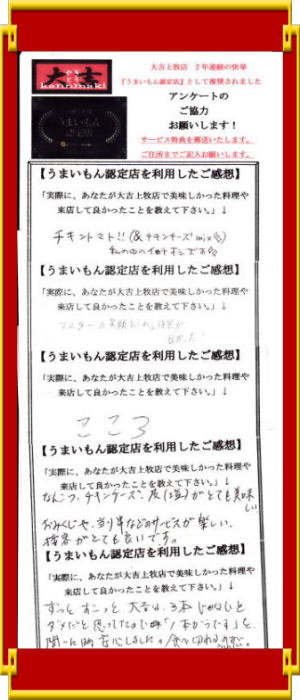 大吉
kanmmaki
うまいもん
認定店
大吉上牧店 2年連続の快挙
『うまいもん認定店』として推奨されました
アンケートの
ご協力
お願いします！
サービス特典を郵送いたします。
ご住所までご記入お願いします。
【うまいもん認定店を利用したご感想】
「実際に、あなたが大吉上牧店で美味しかった料理や
来店して良かったことを教えて下さい。」↓
チキントマト!!(&チキンチーズmix
私の中のイチオシです
【うまいもん認定店を利用したご感想】
「実際に、あなたが大吉上牧店で美味しかった料理や
来店して良かったことを教えて下さい。」↓
マスターの笑顔
【うまいもん認定店を利用したご感想】
「実際に、あなたが大吉上牧店で美味しかった料理や
来店して良かったことを教えて下さい。」↓
こころ
【うまいもん認定店を利用したご感想】
「実際に、あなたが大吉上牧店で美味しかった料理や
来店して良かったことを教えて下さい。」↓
なんこつ、チキンチーズ、皮(塩)がとても美味しい
おみくじや、割引などのサービスが楽しい、
接客がとても良いです。
【うまいもん認定店を利用したご感想】
「実際に、あなたが大吉上牧店で美味しかった料理や
来店して良かったことを教えて下さい。」↓
ずっと ずーっと 大吉は、3本じゃないと
ダメだと思ってたので「1本からです」と
聞いた時安心しました。食べ切れるので。